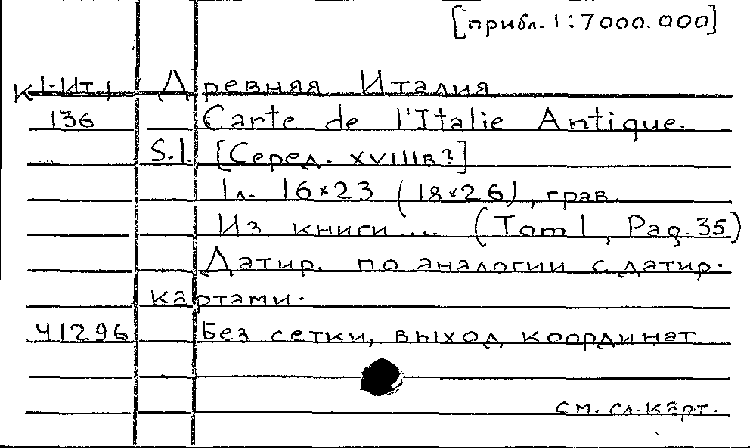 [прибл. 1:7000.000]
К 1-Ит. 1 Древняя Италия
136 Carte de l'Italie Antique.
S.l. [Серед. XVIIIв?]
1л. 16×23 (18×26), грав.
Из книги... (Tom 1, Pag. 35)
Датир. по аналогии с датир.
картами.
41296 Без сетки, выход координат
см. сл. карт.